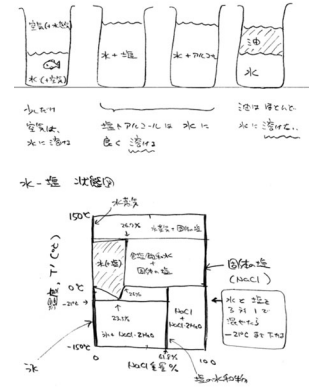 空気(+水蒸気)
水(+空気)
水+塩
水+アルコール
油
水
少しだけ
空気は、
水に溶ける
塩やアルコールは水に
良く溶ける
油はほとんど
水に溶けない
水-塩 状態図
水蒸気
150℃
26.7%
水蒸気+固体の塩
水(+塩)
固体の塩
固体の塩
(NaCl)
温度, T(℃)
0℃
-21℃
26%
23.3%
氷+NaCl·2H2O
NaCl
+
NaCl·2H2O
水と塩を
3対1で
混ぜたら
-21℃まで下がる
-150℃
0
61.8%
100
NaCl重量%
氷
塩の水和物